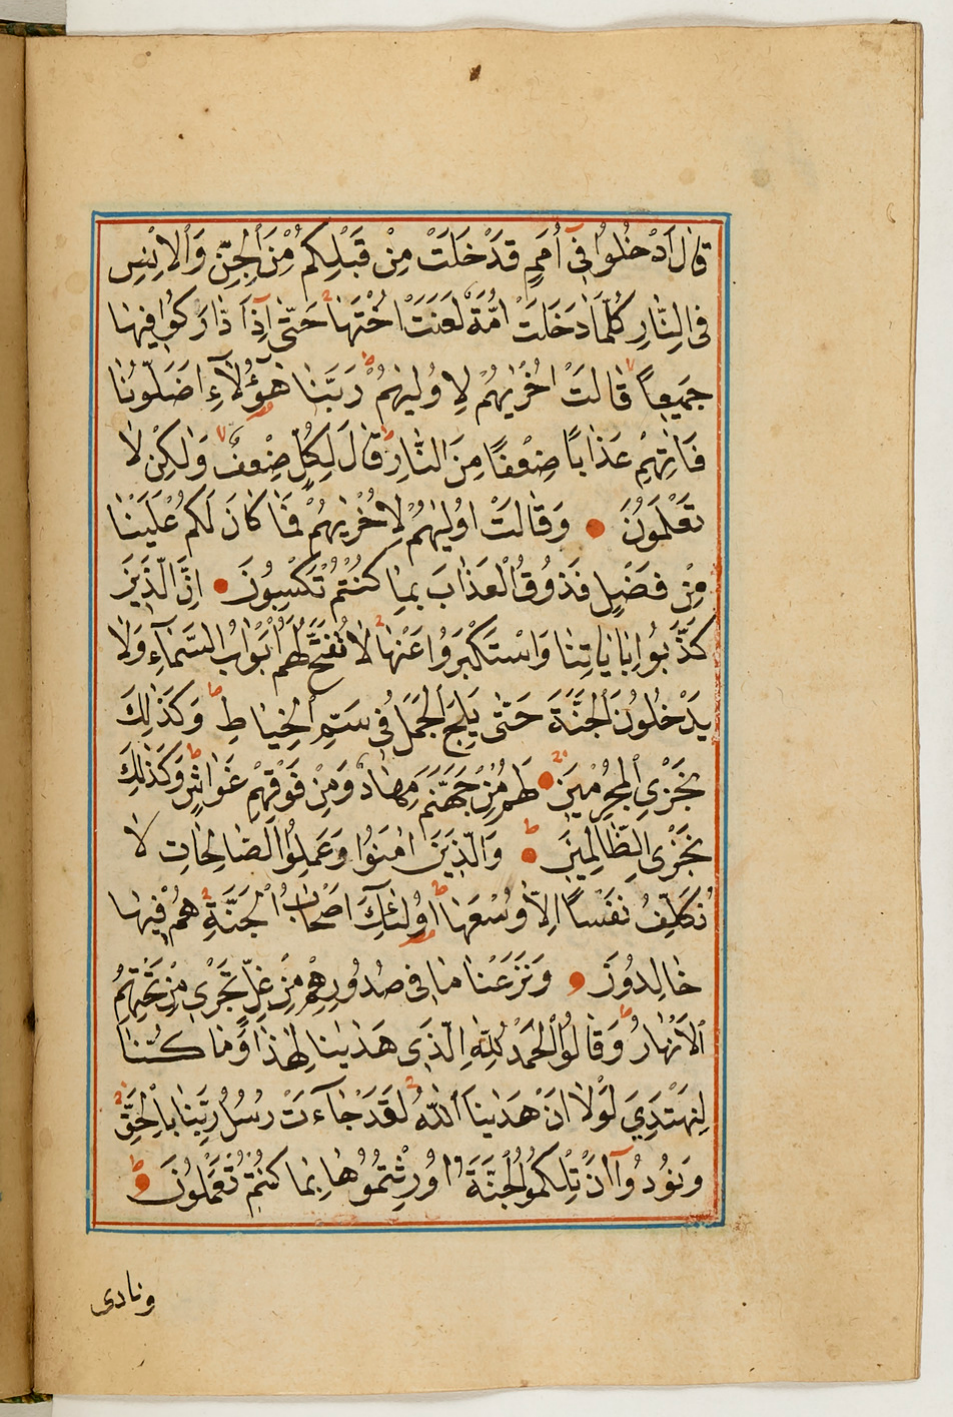 قَالَ ادْخُلُوا فِي أُمَمٍ قَدْ خَلَتْ مِنْ قَبْلِكُمْ مِنَ الْجِنِّ وَالْاِنْسِ
فِي النَّارِ كُلَّمَا دَخَلَتْ اُمَّةٌ لَعَنَتْ اُخْتَهَا حَتّٰى اِذَا ادَّارَكُوا فِيهَا
جَمِيعًا قَالَتْ اُخْرٰيهُمْ لِاُولٰيهُمْ رَبَّنَا هٰٓؤُلَآءِ اَضَلُّونَا
فَاٰتِهِمْ عَذَابًا ضِعْفًا مِنَ النَّارِ قَالَ لِكُلٍّ ضِعْفٌ وَلٰكِنْ لَا
تَعْلَمُونَ وَقَالَتْ اُولٰيهُمْ لِاُخْرٰيهُمْ فَمَا كَانَ لَكُمْ عَلَيْنَا
مِنْ فَضْلٍ فَذُوقُوا الْعَذَابَ بِمَا كُنْتُمْ تَكْسِبُونَ اِنَّ الَّذِينَ
كَذَّبُوا بِاٰيَاتِنَا وَاسْتَكْبَرُوا عَنْهَا لَا تُفَتَّحُ لَهُمْ اَبْوَابُ السَّمَآءِ وَلَا
يَدْخُلُونَ الْجَنَّةَ حَتّٰى يَلِجَ الْجَمَلُ فِي سَمِّ الْخِيَاطِ وَكَذٰلِكَ
نَجْزِي الْمُجْرِمِينَ لَهُمْ مِنْ جَهَنَّمَ مِهَادٌ وَمِنْ فَوْقِهِمْ غَوَاشٍ وَكَذٰلِكَ
نَجْزِي الظَّالِمِينَ وَالَّذِينَ اٰمَنُوا وَعَمِلُوا الصَّالِحَاتِ لَا
نُكَلِّفُ نَفْسًا اِلَّا وُسْعَهَا اُولٰٓئِكَ اَصْحَابُ الْجَنَّةِ هُمْ فِيهَا
خَالِدُونَ وَنَزَعْنَا مَا فِي صُدُورِهِمْ مِنْ غِلٍّ تَجْرِي مِنْ تَحْتِهِمُ
الْاَنْهَارُ وَقَالُوا الْحَمْدُ لِلّٰهِ الَّذِي هَدٰينَا لِهٰذَا وَمَا كُنَّا
لِنَهْتَدِيَ لَوْلَا اَنْ هَدٰينَا اللّٰهُ لَقَدْ جَآءَتْ رُسُلُ رَبِّنَا بِالْحَقِّ
وَنُودُوٓا اَنْ تِلْكُمُ الْجَنَّةُ اُورِثْتُمُوهَا بِمَا كُنْتُمْ تَعْمَلُونَ
ونادى